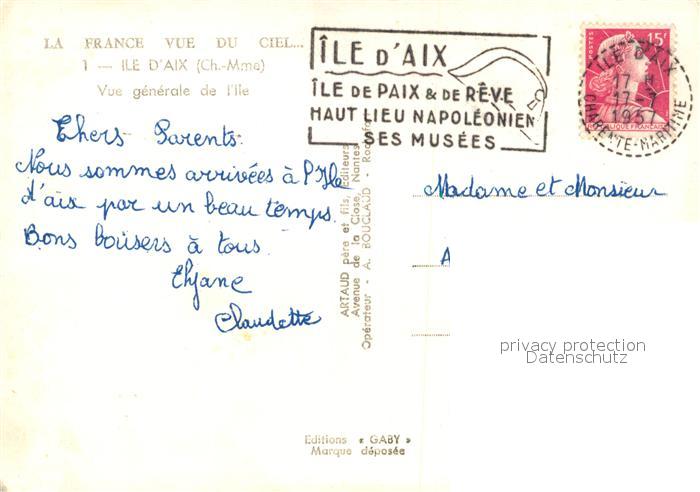 LA FRANCE VUE DU CIEL...
1 — ILE D'AIX (Ch.-Mme)
Vue générale de l'Ile
Chers Parents.
Nous sommes arrivées à l'Ile
d'aix par un beau temps.
Bons baisers à tous.
Claudette
ÎLE D'AIX
ÎLE DE PAIX & DE RÊVE
HAUT LIEU NAPOLÉONIEN
SES MUSÉES
POSTES
15F
RÉPUBLIQUE FRANÇAISE
ILE D'AIX
17 H
17-7
1957
CHARENTE-MARITIME
Madame et Monsieur
A
ARTAUD père et fils, Editeurs
Avenue de la Close, Nantes
Opérateur - A. BOUCLAUD -
privacy protection
Datenschutz
Editions « GABY »
Marque déposée